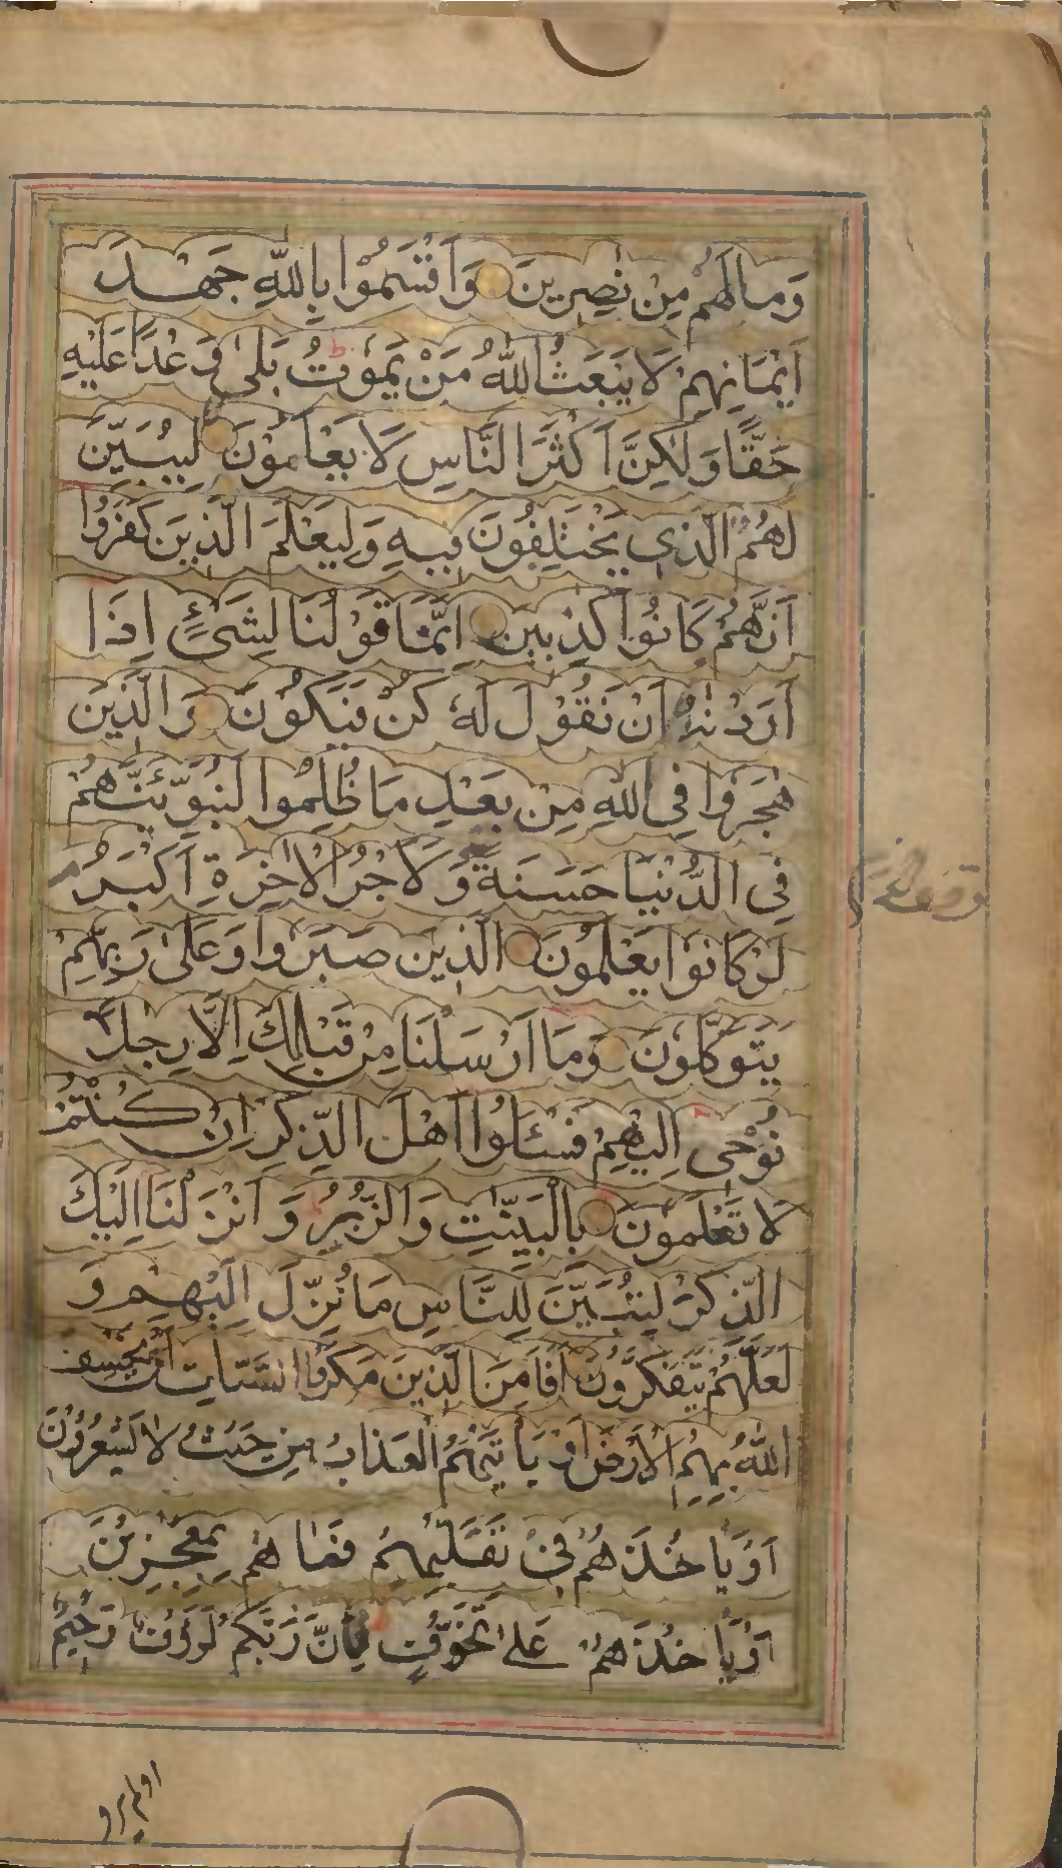 وَمَا لَهُمْ مِنْ نٰصِرِينَ وَاَقْسَمُوا بِاللّٰهِ جَهْدَ
اَيْمَانِهِمْ لَا يَبْعَثُ اللّٰهُ مَنْ يَمُوْتُ بَلٰى وَعْدًا عَلَيْهِ
حَقًّا وَلٰكِنَّ اَكْثَرَ النَّاسِ لَا يَعْلَمُوْنَ لِيُبَيِّنَ
لَهُمُ الَّذِى يَخْتَلِفُونَ فِيهِ وَلِيَعْلَمَ الَّذِينَ كَفَرُوْا
اَنَّهُمْ كَانُوْا كٰذِبِينَ اِنَّمَا قَوْلُنَا لِشَىْءٍ اِذَا
اَرَدْنٰهُ اَنْ نَقُوْلَ لَهٗ كُنْ فَيَكُوْنَ وَالَّذِينَ
هٰجَرُوْا فِى اللّٰهِ مِنْ بَعْدِ مَا ظُلِمُوا لَنُبَوِّئَنَّهُمْ
فِى الدُّنْيَا حَسَنَةً وَلَاَجْرُ الْاٰخِرَةِ اَكْبَرُ
لَوْ كَانُوْا يَعْلَمُوْنَ الَّذِينَ صَبَرُوْا وَعَلٰى رَبِّهِمْ
يَتَوَكَّلُوْنَ وَمَا اَرْسَلْنَا مِنْ قَبْلِكَ اِلَّا رِجَالًا
نُوْحِى اِلَيْهِمْ فَسْئَلُوْا اَهْلَ الذِّكْرِ اِنْ كُنْتُمْ
لَا تَعْلَمُوْنَ بِالْبَيِّنٰتِ وَالزُّبُرِ وَاَنْزَلْنَا اِلَيْكَ
الذِّكْرَ لِتُبَيِّنَ لِلنَّاسِ مَا نُزِّلَ اِلَيْهِمْ وَ
لَعَلَّهُمْ يَتَفَكَّرُوْنَ اَفَاَمِنَ الَّذِينَ مَكَرُوا السَّيِّاٰتِ اَنْ يَخْسِفَ
اللّٰهُ بِهِمُ الْاَرْضَ اَوْ يَاْتِيَهُمُ الْعَذَابُ مِنْ حَيْثُ لَا يَشْعُرُوْنَ
اَوْ يَاْخُذَهُمْ فِىْ تَقَلُّبِهِمْ فَمَا هُمْ بِمُعْجِزِيْنَ
اَوْ يَاْخُذَهُمْ عَلٰى تَخَوُّفٍ فَاِنَّ رَبَّكُمْ لَرَؤُفٌ رَحِيْمٌ
اولم يرو